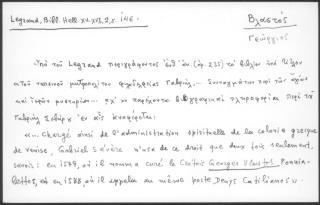 Legrand, Bibl. Hell. XV-XVI, 2, σ. 146.
Βλαστός
Γεώργιος
Ὑπὸ τοῦ Legrand περιγράφοντος ἐνθ' ἀν. (σελ. 235) τὸ βιβλίον ὑπὸ τίτλον
«Τοῦ ταπεινοῦ μητροπολίτου φιλαδελφείας Γαβριὴλ... Συνταγμάτιον περὶ τῶν ἁγίων
καὶ ἱερῶν μυστηρίων... παρέχονται βιογραφικαὶ πληροφορίαι περὶ τοῦ
Γαβριὴλ Σεβήρου ἐν αἷς ἀναφέρεται:
«... Chargé ainsi de l'administration spirituelle de la colonie grecque
de Venise, Gabriel Sévère n'usa de ce droit que deux fois seulement,
savoir: en 1579, où il nomma curé le Crétois Georges Vlastos,
et en 1588, où il appela au même poste Denys Catilianos».